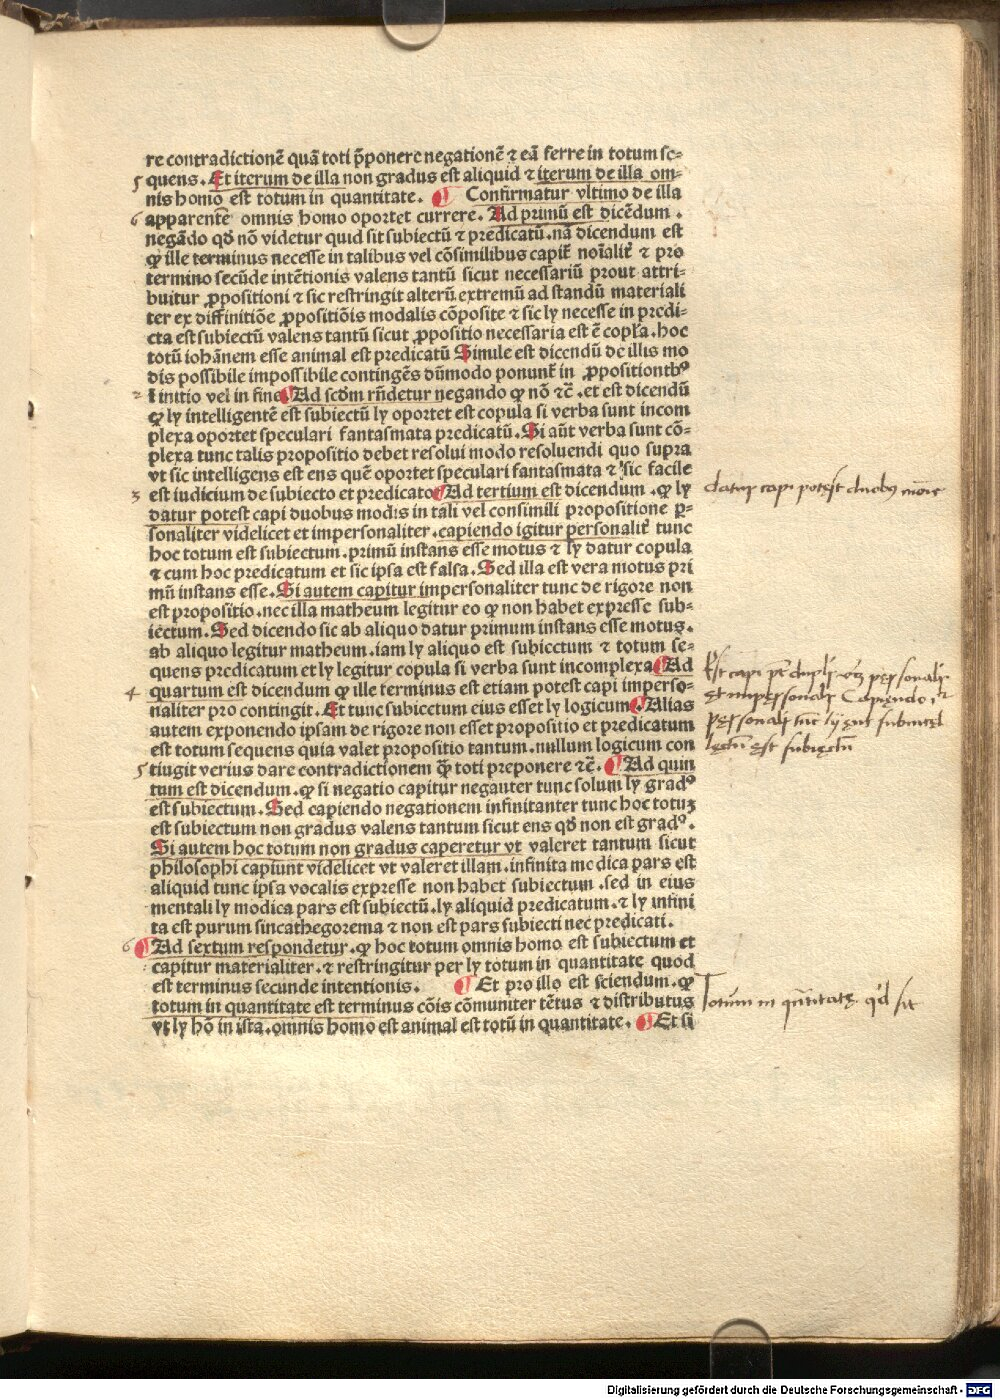 re contradictionē quā toti p̄ponere negationē ⁊ eā ferre in totum se⸗
5 quens. Et iterum de illa non gradus est aliquid ⁊ iterum de illa om⸗
nis homo est totum in quantitate. ¶ Confirmatur vltimo de illa
6 apparente omnis homo oportet currere. Ad primū est dicēdum .
negādo qd̄ nō videtur quid sit subiectū ⁊ predicatū. nā dicendum est
ꝙ ille terminus necesse in talibus vel cōsimilibus capit᷑ noīalit᷑ ⁊ pro
termino secūde intētionis valens tantū sicut necessariū prout attri⸗
buitur ꝓpositioni ⁊ sic restringit alterū extremū ad standū materiali
ter ex diffinitiōe ꝓpositiōis modalis cōposite ⁊ sic ly necesse in predi⸗
cta est subiectū valens tantū sicut ꝓpositio necessaria est ē copla. hoc
totū iohānem esse animal est predicatū Simile est dicendū de illis mo
dis possibile impossibile contingēs dūmodo ponunt᷑ in ꝓpositionibꝰ
2 ī initio vel in fine ¶ Ad scdm rn̄detur negando ꝙ nō ⁊c̄ . et est dicendū
ꝙ ly intelligentē est subiectū ly oportet est copula si verba sunt incom
plexa oportet speculari fantasmata predicatū. Si aūt verba sunt cō⸗
plexa tunc talis propositio debet resolui modo resoluendi quo supra
vt sic intelligens est ens quē oportet speculari fantasmata ⁊ sic facile
3 est iudicium de subiecto et predicato ¶ Ad tertium est dicendum . ꝙ ly
datur potest capi duobus modis in tali vel consimili propositione ꝑ⸗
sonaliter videlicet et impersonaliter . capiendo igitur personalit᷑ tunc
hoc totum est subiectum . primū instans esse motus ⁊ ly datur copula
⁊ cum hoc predicatum et sic ipsa est falsa. Sed illa est vera motus pri
mū instans esse. Si autem capitur impersonaliter tunc de rigore non
est propositio . nec illa matheum legitur eo ꝙ non habet expresse sub⸗
iectum. Sed dicendo sic ab aliquo datur primum instans esse motus.
ab aliquo legitur matheum. iam ly aliquo est subiectum ⁊ totum se⸗
quens predicatum et ly legitur copula si verba sunt incomplexa ¶ Ad
4 quartum est dicendum ꝙ ille terminus est etiam potest capi imperso⸗
naliter pro contingit. Et tunc subiectum eius esset ly logicum ¶ Alias
autem exponendo ipsam de rigore non esset propositio et predicatum
est totum sequens quia valet propositio tantum. nullum logicum con
5 tingit verius dare contradictionem q̄ꝫ toti preponere ⁊c̄. ¶ Ad quin
tum est dicendum. ꝙ si negatio capitur neganter tunc solum ly gradꝰ
est subiectum. Sed capiendo negationem infinitanter tunc hoc totuꝫ
est subiectum non gradus valens tantum sicut ens qd̄ non est gradꝰ.
Si autem hoc totum non gradus caperetur vt valeret tantum sicut
philosophi capiunt videlicet vt valeret illam. infinita modica pars est
aliquid tunc ipsa vocalis expresse non habet subiectum . sed in eius
mentali ly modica pars est subiectū. ly aliquid predicatum. ⁊ ly infini
ta est purum sincathegorema ⁊ non est pars subiecti nec predicati.
6 ¶ Ad sextum respondetur. ꝙ hoc totum omnis homo est subiectum et
capitur materialiter. ⁊ restringitur per ly totum in quantitate quod
est terminus secunde intentionis. ¶ Et pro illo est sciendum. ꝙ
totum in quantitate est terminus cōis cōmuniter tētus ⁊ distributus
vt ly hō in ista. omnis homo est animal est totū in quantitate. ¶ Et si
datur capi potest duobus
Est capi
personali
et impersonali Capiendo
personali tunc ly
est subiectū
Totum in quātitate qd̄ sit
Digitalisierung gefördert durch die Deutsche Forschungsgemeinschaft - DFG